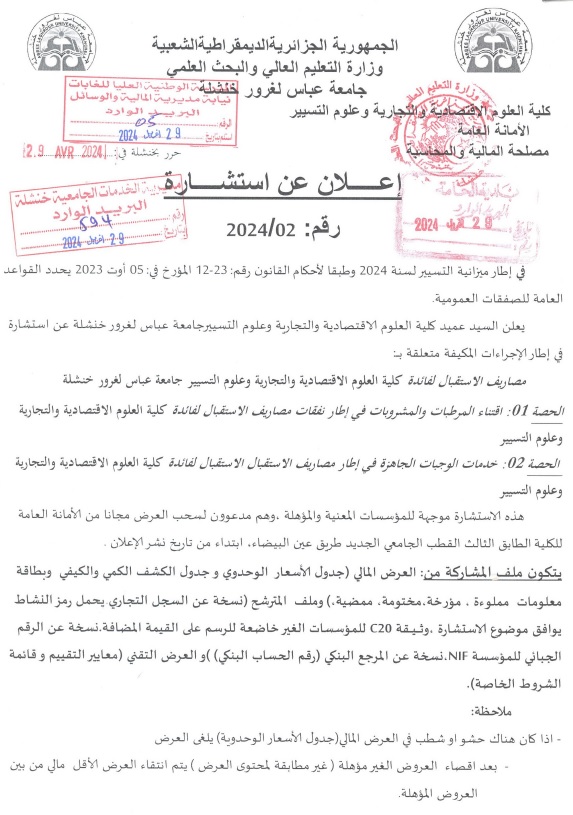 الجمهورية الجزائرية الديمقراطية الشعبية
وزارة التعليم العالي والبحث العلمي
جامعة عباس لغرور خنشلة
كلية العلوم الاقتصادية والتجارية وعلوم التسيير
الأمانة العامة
مصلحة المالية والمحاسبة
الوطنية العليا للغابات
نيابة مديرية المالية والوسائل
البريد الوارد
الرقم 05
29 أفريل 2024
حرر بخنشلة في: 29 AVR 2024
إعلان عن استشارة
مديرية الخدمات الجامعية خنشلة
البريد الوارد
رقم: 594
تاريخ 29 أفريل 2024
29 أفريل 2024
رقم: 2024/02
في إطار ميزانية التسيير لسنة 2024 وطبقا لأحكام القانون رقم: 23-12 المؤرخ في: 05 أوت 2023 يحدد القواعد
العامة للصفقات العمومية.
يعلن السيد عميد كلية العلوم الاقتصادية والتجارية وعلوم التسييرجامعة عباس لغرور خنشلة عن استشارة
في إطار الإجراءات المكيفة متعلقة بـ:
مصاريف الاستقبال لفائدة كلية العلوم الاقتصادية والتجارية وعلوم التسيير جامعة عباس لغرور خنشلة
الحصة 01: اقتناء المرطبات والمشروبات في إطار نفقات مصاريف الاستقبال لفائدة كلية العلوم الاقتصادية والتجارية
وعلوم التسيير
الحصة 02: خدمات الوجبات الجاهزة في إطار مصاريف الاستقبال الاستقبال لفائدة كلية العلوم الاقتصادية والتجارية
وعلوم التسيير
هذه الاستشارة موجهة للمؤسسات المعنية والمؤهلة ،وهم مدعوون لسحب العرض مجانا من الأمانة العامة
للكلية الطابق الثالث القطب الجامعي الجديد طريق عين البيضاء، ابتداء من تاريخ نشر الإعلان .
يتكون ملف المشاركة من: العرض المالي (جدول الأسعار الوحدوي و جدول الكشف الكمي والكيفي وبطاقة
معلومات مملوءة ، مؤرخة،مختومة، ممضية،) وملف المترشح (نسخة عن السجل التجاري يحمل رمز النشاط
يوافق موضوع الاستشارة ،وثيقة C20 للمؤسسات الغير خاضعة للرسم على القيمة المضافة.نسخة عن الرقم
الجبائي للمؤسسة NIF،نسخة عن المرجع البنكي (رقم الحساب البنكي) )و العرض التقني (معايير التقييم و قائمة
الشروط الخاصة).
ملاحظة:
- اذا كان هناك حشو او شطب في العرض المالي(جدول الأسعار الوحدوية) يلغى العرض
- بعد اقصاء العروض الغير مؤهلة ( غير مطابقة لمحتوى العرض ) يتم انتقاء العرض الأقل مالي من بين
العروض المؤهلة.